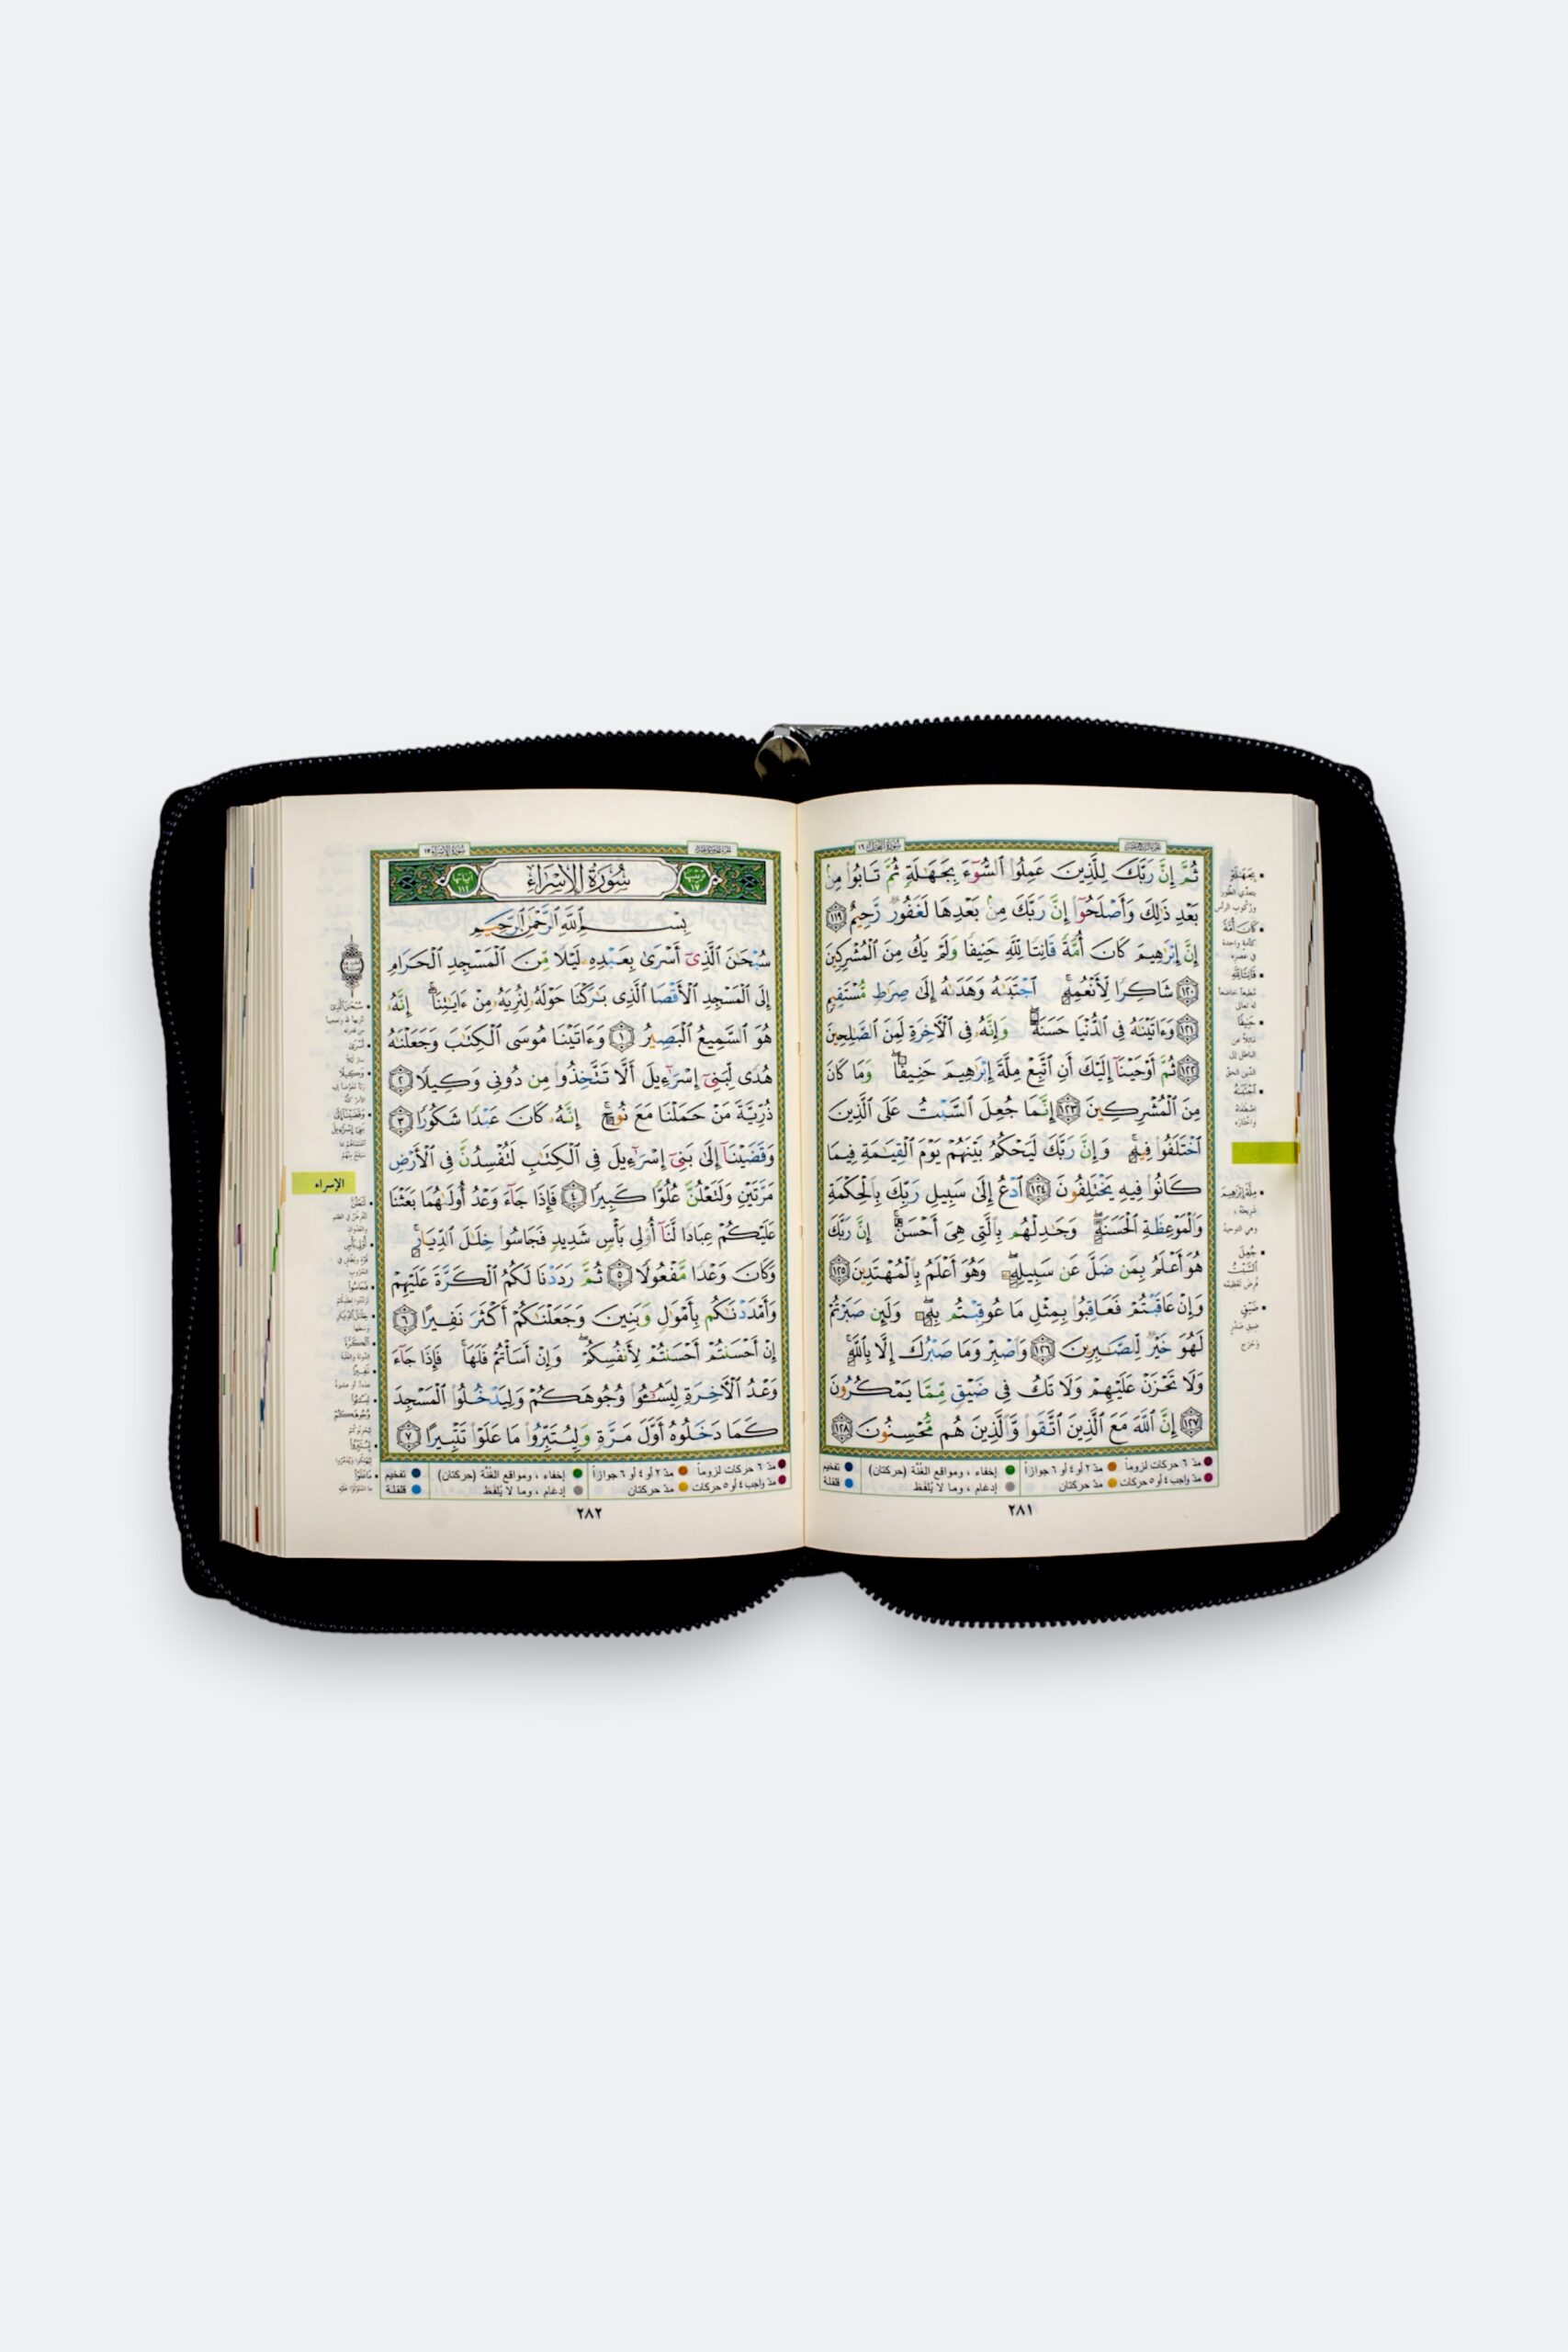 سورة النحل ١٦
ثُمَّ إِنَّ رَبَّكَ لِلَّذِينَ عَمِلُوا۟ ٱلسُّوٓءَ بِجَهَـٰلَةٍ ثُمَّ تَابُوا۟ مِنۢ
بَعْدِ ذَٰلِكَ وَأَصْلَحُوٓا۟ إِنَّ رَبَّكَ مِنۢ بَعْدِهَا لَغَفُورٌ رَّحِيمٌ ١١٩
إِنَّ إِبْرَٰهِيمَ كَانَ أُمَّةً قَانِتًا لِّلَّهِ حَنِيفًا وَلَمْ يَكُ مِنَ ٱلْمُشْرِكِينَ
١٢٠ شَاكِرًا لِّأَنْعُمِهِ ۚ ٱجْتَبَىٰهُ وَهَدَىٰهُ إِلَىٰ صِرَٰطٍ مُّسْتَقِيمٍ
١٢١ وَءَاتَيْنَـٰهُ فِى ٱلدُّنْيَا حَسَنَةً ۖ وَإِنَّهُۥ فِى ٱلْـَٔاخِرَةِ لَمِنَ ٱلصَّـٰلِحِينَ
١٢٢ ثُمَّ أَوْحَيْنَآ إِلَيْكَ أَنِ ٱتَّبِعْ مِلَّةَ إِبْرَٰهِيمَ حَنِيفًا ۖ وَمَا كَانَ
مِنَ ٱلْمُشْرِكِينَ ١٢٣ إِنَّمَا جُعِلَ ٱلسَّبْتُ عَلَى ٱلَّذِينَ
ٱخْتَلَفُوا۟ فِيهِ ۚ وَإِنَّ رَبَّكَ لَيَحْكُمُ بَيْنَهُمْ يَوْمَ ٱلْقِيَـٰمَةِ فِيمَا
كَانُوا۟ فِيهِ يَخْتَلِفُونَ ١٢٤ ٱدْعُ إِلَىٰ سَبِيلِ رَبِّكَ بِٱلْحِكْمَةِ
وَٱلْمَوْعِظَةِ ٱلْحَسَنَةِ ۖ وَجَـٰدِلْهُم بِٱلَّتِى هِىَ أَحْسَنُ ۚ إِنَّ رَبَّكَ
هُوَ أَعْلَمُ بِمَن ضَلَّ عَن سَبِيلِهِ ۖ وَهُوَ أَعْلَمُ بِٱلْمُهْتَدِينَ ١٢٥
وَإِنْ عَاقَبْتُمْ فَعَاقِبُوا۟ بِمِثْلِ مَا عُوقِبْتُم بِهِ ۖ وَلَئِن صَبَرْتُمْ
لَهُوَ خَيْرٌ لِّلصَّـٰبِرِينَ ١٢٦ وَٱصْبِرْ وَمَا صَبْرُكَ إِلَّا بِٱللَّهِ ۚ
وَلَا تَحْزَنْ عَلَيْهِمْ وَلَا تَكُ فِى ضَيْقٍ مِّمَّا يَمْكُرُونَ
١٢٧ إِنَّ ٱللَّهَ مَعَ ٱلَّذِينَ ٱتَّقَوا۟ وَّٱلَّذِينَ هُم مُّحْسِنُونَ ١٢٨
مدّ ٦ حركات لزوماً مدّ ٢ أو ٤ أو ٦ جوازاً إخفاء ، ومواقع الغُنّة (حركتان) تفخيم
مدّ واجب ٤ أو ٥ حركات مدّ حركتان إدغام ، وما لا يُلفَظ قلقلة
٢٨١
سورة الإسراء ١٧
ترتيبها ١٧ سُورَةُ الإِسْرَاءِ آياتها ١١١
بِسْمِ ٱللَّهِ ٱلرَّحْمَـٰنِ ٱلرَّحِيمِ
سُبْحَـٰنَ ٱلَّذِىٓ أَسْرَىٰ بِعَبْدِهِۦ لَيْلًا مِّنَ ٱلْمَسْجِدِ ٱلْحَرَامِ
إِلَى ٱلْمَسْجِدِ ٱلْأَقْصَا ٱلَّذِى بَـٰرَكْنَا حَوْلَهُۥ لِنُرِيَهُۥ مِنْ ءَايَـٰتِنَآ ۚ إِنَّهُۥ
هُوَ ٱلسَّمِيعُ ٱلْبَصِيرُ ١ وَءَاتَيْنَا مُوسَى ٱلْكِتَـٰبَ وَجَعَلْنَـٰهُ
هُدًى لِّبَنِىٓ إِسْرَٰٓءِيلَ أَلَّا تَتَّخِذُوا۟ مِن دُونِى وَكِيلًا ٢
ذُرِّيَّةَ مَنْ حَمَلْنَا مَعَ نُوحٍ ۚ إِنَّهُۥ كَانَ عَبْدًا شَكُورًا ٣
وَقَضَيْنَآ إِلَىٰ بَنِىٓ إِسْرَٰٓءِيلَ فِى ٱلْكِتَـٰبِ لَتُفْسِدُنَّ فِى ٱلْأَرْضِ
مَرَّتَيْنِ وَلَتَعْلُنَّ عُلُوًّا كَبِيرًا ٤ فَإِذَا جَآءَ وَعْدُ أُولَىٰهُمَا بَعَثْنَا
عَلَيْكُمْ عِبَادًا لَّنَآ أُو۟لِى بَأْسٍ شَدِيدٍ فَجَاسُوا۟ خِلَـٰلَ ٱلدِّيَارِ ۚ
وَكَانَ وَعْدًا مَّفْعُولًا ٥ ثُمَّ رَدَدْنَا لَكُمُ ٱلْكَرَّةَ عَلَيْهِمْ
وَأَمْدَدْنَـٰكُم بِأَمْوَٰلٍ وَبَنِينَ وَجَعَلْنَـٰكُمْ أَكْثَرَ نَفِيرًا ٦
إِنْ أَحْسَنتُمْ أَحْسَنتُمْ لِأَنفُسِكُمْ ۖ وَإِنْ أَسَأْتُمْ فَلَهَا ۚ فَإِذَا جَآءَ
وَعْدُ ٱلْـَٔاخِرَةِ لِيَسُـۥٓـُٔوا۟ وُجُوهَكُمْ وَلِيَدْخُلُوا۟ ٱلْمَسْجِدَ
كَمَا دَخَلُوهُ أَوَّلَ مَرَّةٍ وَلِيُتَبِّرُوا۟ مَا عَلَوْا۟ تَتْبِيرًا ٧
الإسراء
مدّ ٦ حركات لزوماً مدّ ٢ أو ٤ أو ٦ جوازاً إخفاء ، ومواقع الغُنّة (حركتان) تفخيم
مدّ واجب ٤ أو ٥ حركات مدّ حركتان إدغام ، وما لا يُلفَظ قلقلة
٢٨٢